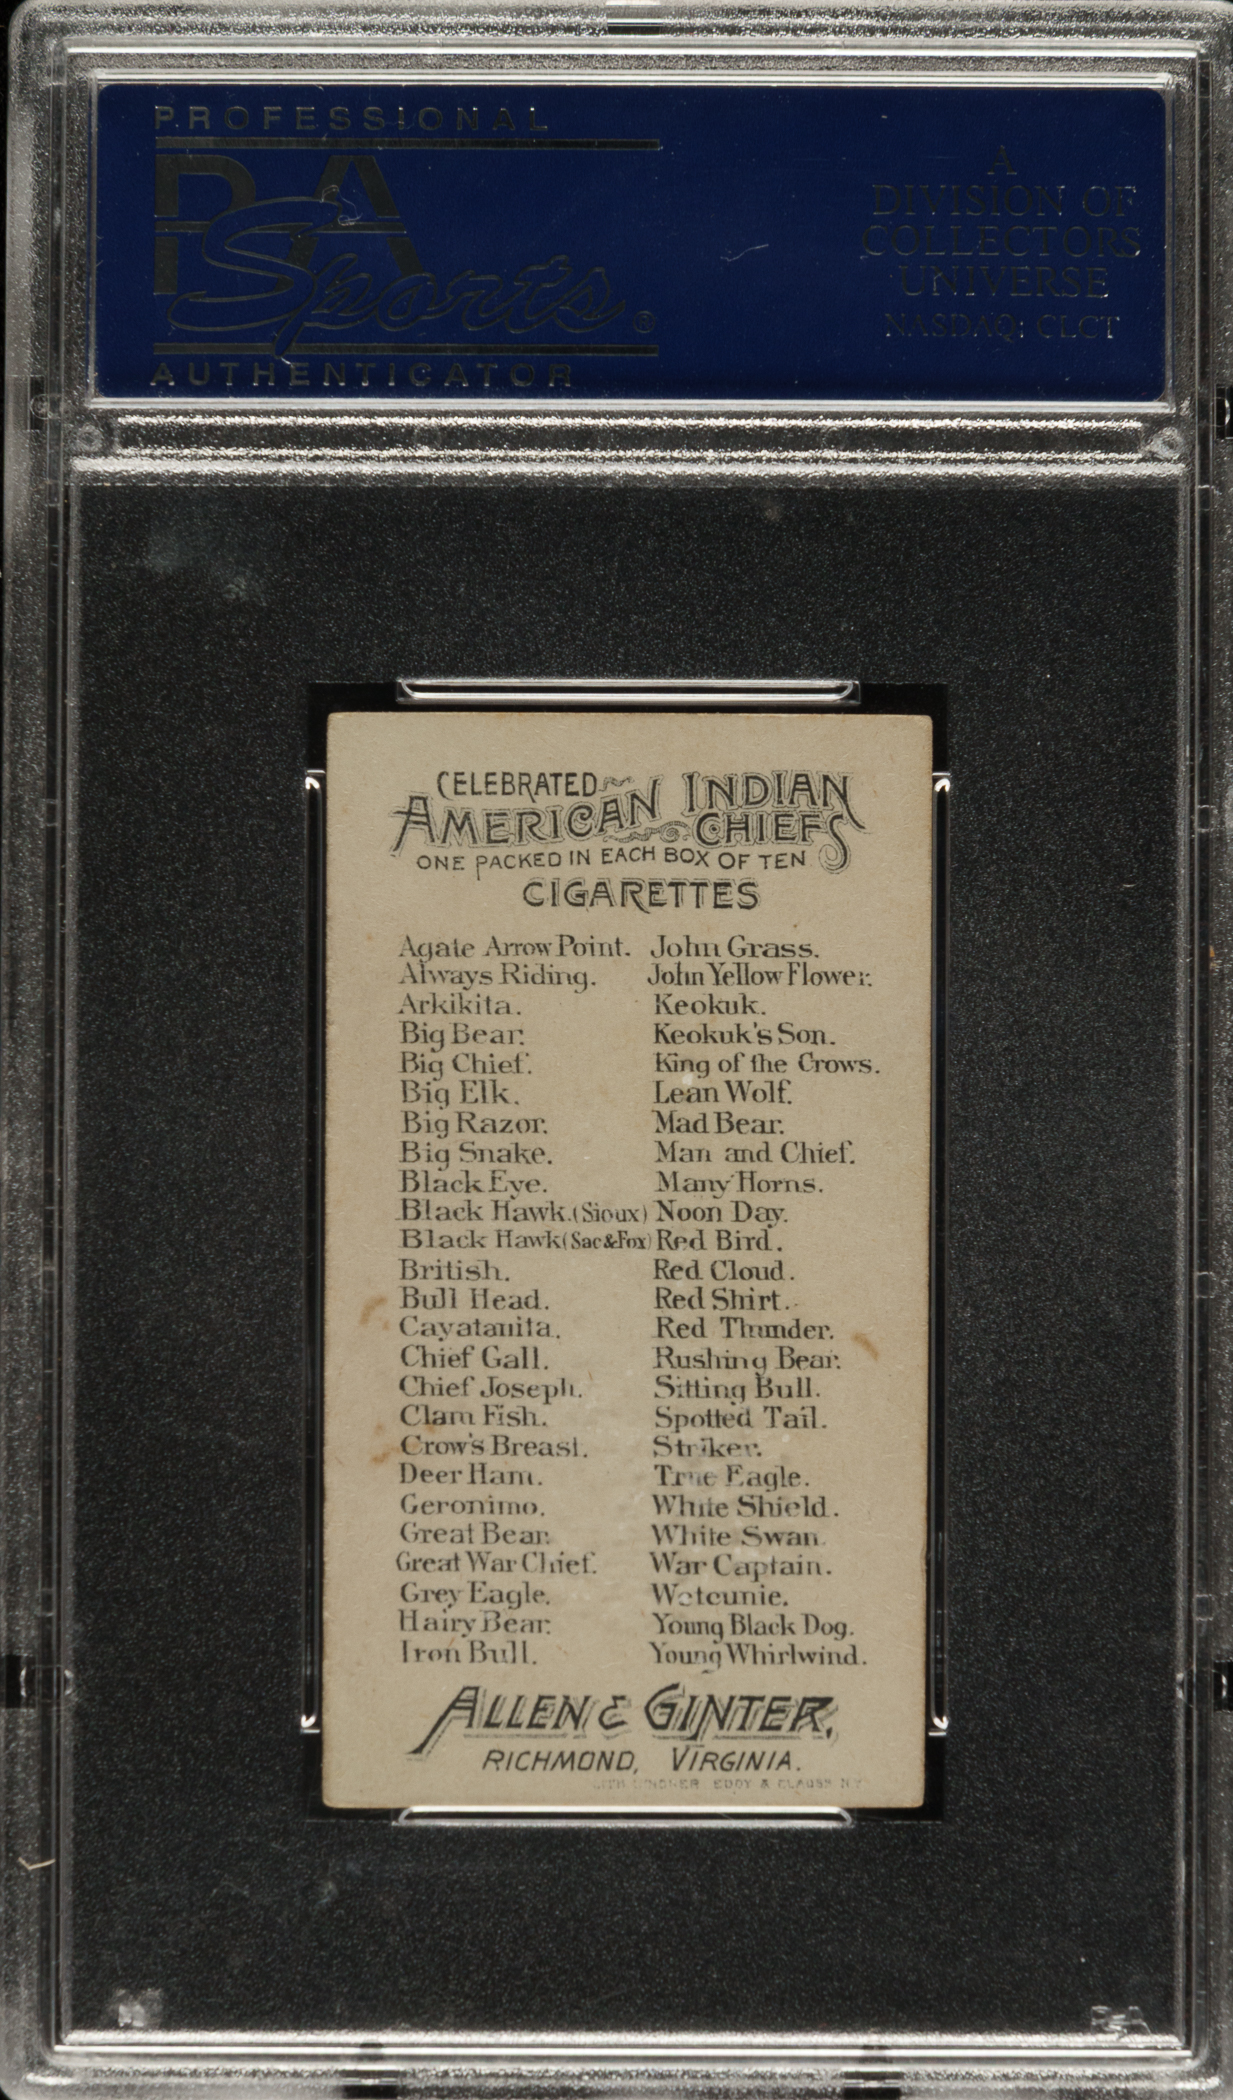 PROFESSIONAL
PSA
Sports®
AUTHENTICATOR
A
DIVISION OF
COLLECTORS
UNIVERSE
NASDAQ: CLCT
CELEBRATED
AMERICAN INDIAN
CHIEFS
ONE PACKED IN EACH BOX OF TEN
CIGARETTES
Agate Arrow Point.
Always Riding.
Arkikita.
Big Bear.
Big Chief.
Big Elk.
Big Razor.
Big Snake.
Black Eye.
Black Hawk.(Sioux)
Black Hawk(Sac&Fox)
British.
Bull Head.
Cayatanita.
Chief Gall.
Chief Joseph.
Clam Fish.
Crow's Breast.
Deer Ham.
Geronimo.
Great Bear.
Great War Chief.
Grey Eagle.
Hairy Bear.
Iron Bull.
John Grass.
John Yellow Flower.
Keokuk.
Keokuk's Son.
King of the Crows.
Lean Wolf.
Mad Bear.
Man and Chief.
Many Horns.
Noon Day.
Red Bird.
Red Cloud.
Red Shirt.
Red Thunder.
Rushing Bear.
Sitting Bull.
Spotted Tail.
Striker.
True Eagle.
White Shield.
White Swan.
War Captain.
Wetcunie.
Young Black Dog.
Young Whirlwind.
ALLEN & GINTER,
RICHMOND, VIRGINIA.
LITH LINDNER EDDY & CLAUSS N.Y.
PSA